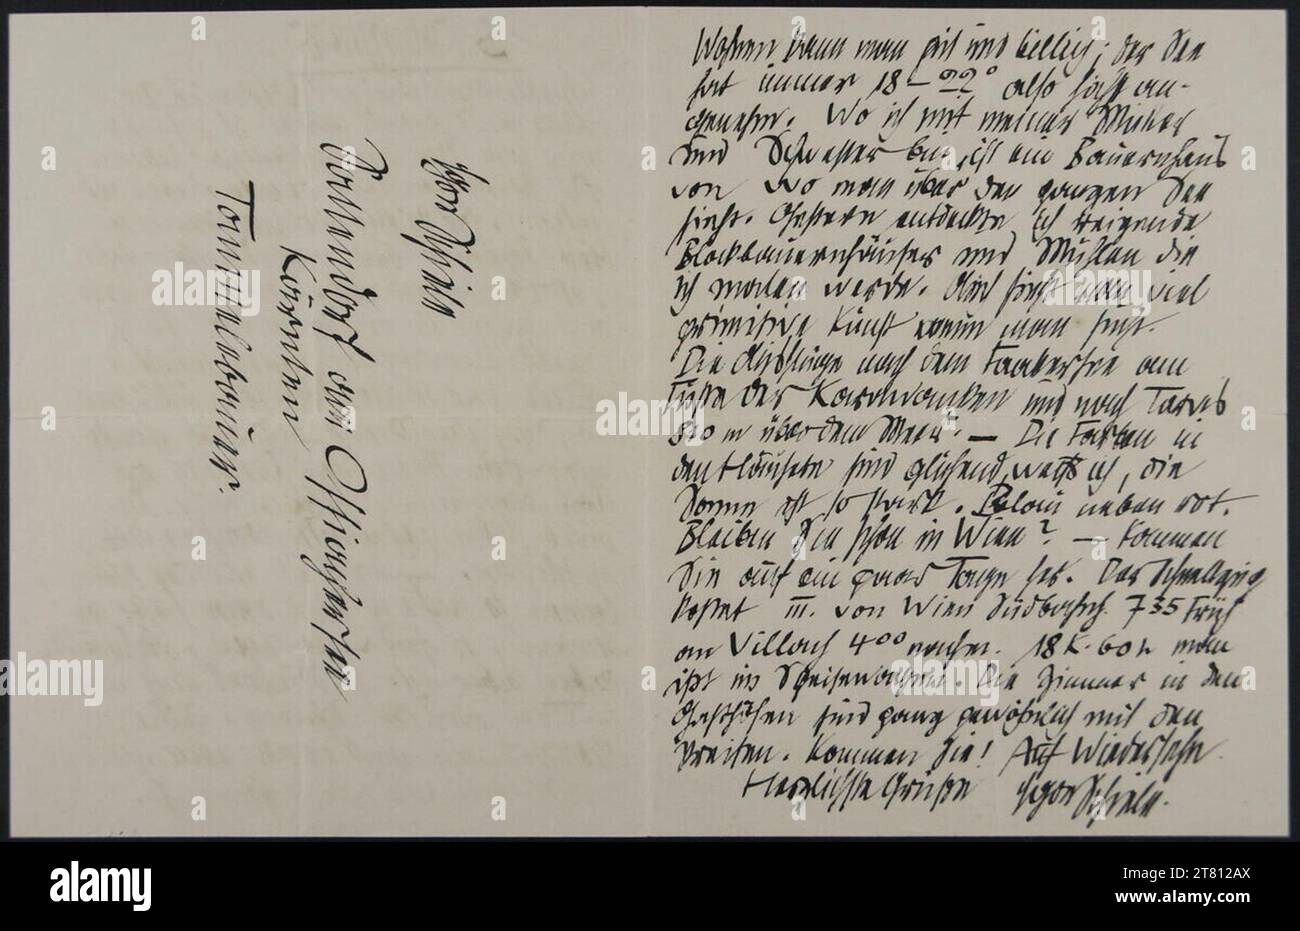 Egon Schiele
Sattendorf am Ossiachersee
Kärnten
Wohnen kann man gut und billig, der See
hat immer 18–22° also höchst an-
genehm. Wo ich mit meiner Mutter
und Schwester bin, ist ein Bauernhaus
von wo man über den ganzen See
sieht. Gestern entdeckte ich steigende
Blockbauernhäuser und Mühlen die
ich malen werde. Auch sieht man viel
primitive Kunst wenn man sieht.
Die Ausflüge nach dem Faakersee am
Fuße der Karawanken und nach Tarvis
810 m über dem Meer. — Die Farben in
den Häusern sind glühend weiß ich, die
Sonne ist so stark. Blau neben rot.
Bleiben Sie schon in Wien? — Kommen
Sie auf ein paar Tage her. Der Schnellzug
kostet III. von Wien Südbahnh. 7 35 Früh
an Villach 4 00 nachm. 18 K. 60 h man
ißt im Speisewagen. Die Zimmer in den
Gasthöfen sind ganz gewöhnlich mit den
Preisen. Kommen Sie! Auf Wiedersehn
Herzlichste Grüße Egon Schiele.
alamy
Image ID: 2T812AX
www.alamy.com